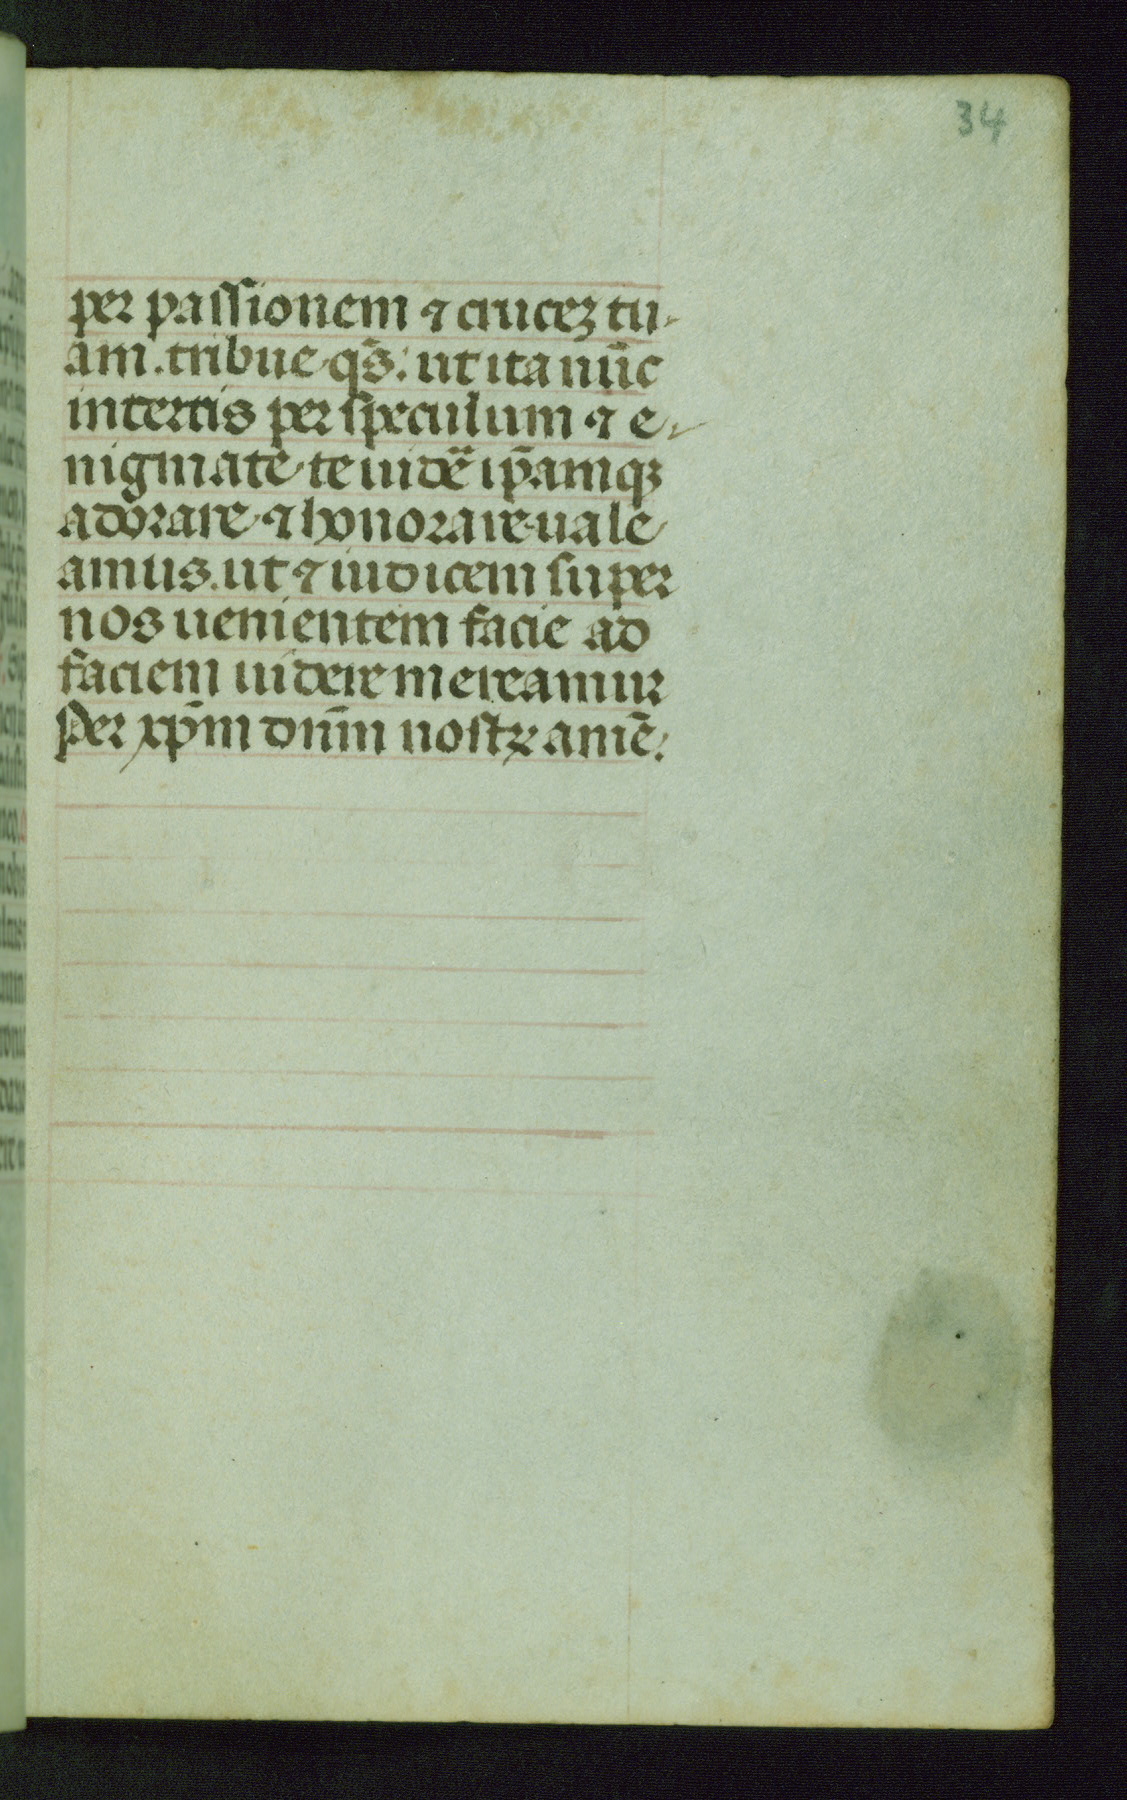 34
per passionem ⁊ cruceꝫ tu-
am. tribue q̄s: ut ita nūc
in terris per speculum ⁊ e-
nigmate te uidē ip̄amqꝫ
adorare ⁊ honorare uale
amus. ut ⁊ iudicem super
nos uenientem facie ad
faciem uidere mereamur
Per xp̄m dn̄m nostꝝ amē.